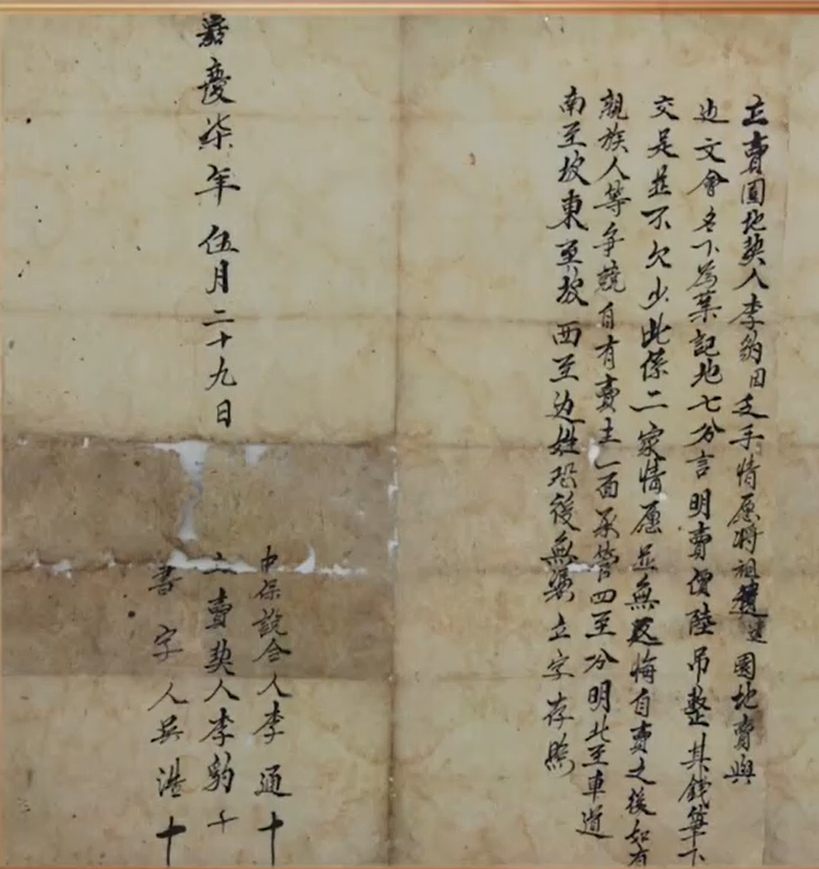 立賣園地契人李豹因乏手情愿將祖遺園地賣與
边文會名下為業記地七分言明賣價陸吊整其錢筆下
交足並不欠少此係二家情愿並無返悔自賣之後如有
親族人等爭競自有賣主一面承管四至分明北至車道
南至坡東至坡西至边姓恐後無憑立字存照
中保說合人李通十
立賣契人李豹十
書字人吳港十
嘉慶柒年伍月二十九日